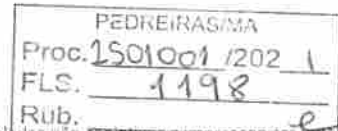 PEDREIRAS/MA
Proc. 1501001 /202 1
FLS. 1198
Rub. e